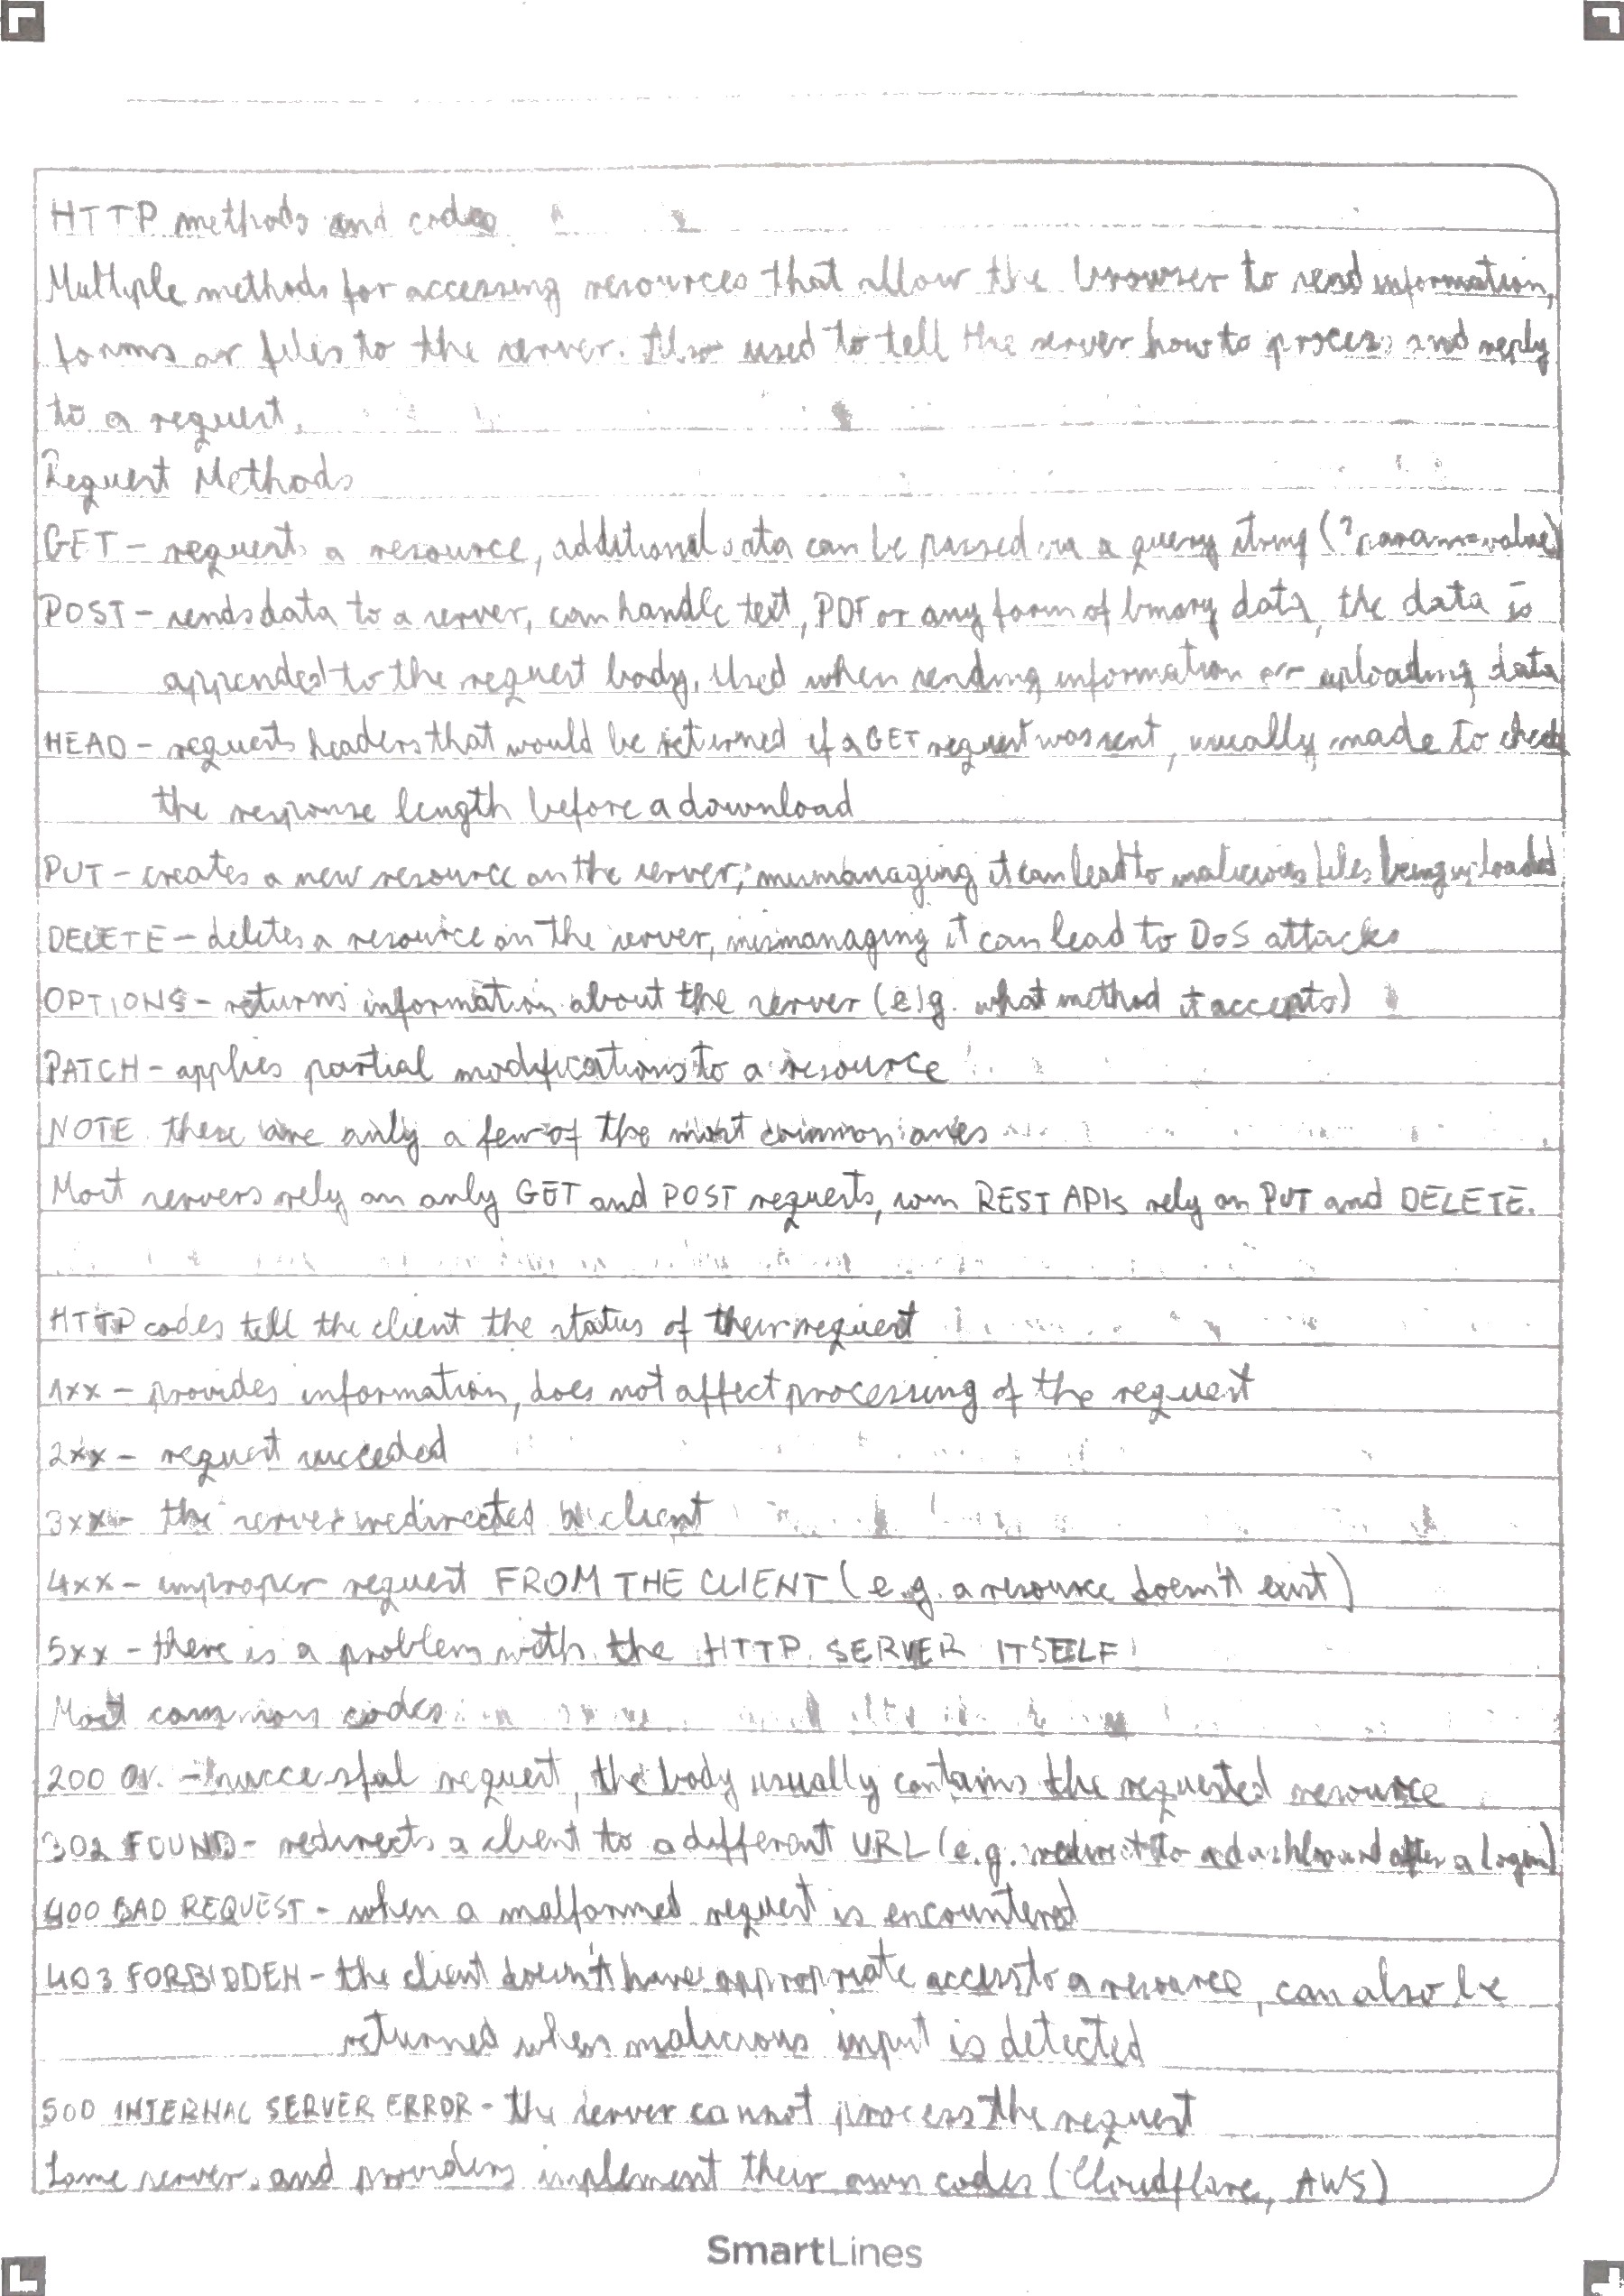 HTTP methods and codes
Multiple methods for accessing resources that allow the browser to send information,
forms or files to the server. Also used to tell the server how to process and reply
to a request.
Request Methods
GET - requests a resource, additional data can be passed via a query string (?param=value)
POST - sends data to a server, can handle text, PDF or any form of binary data, the data is
appended to the request body. Used when sending information or uploading data
HEAD - requests headers that would be returned if a GET request was sent, usually made to check
the response length before a download
PUT - creates a new resource on the server, mismanaging it can lead to malicious files being uploaded
DELETE - deletes a resource on the server, mismanaging it can lead to DoS attacks
OPTIONS - returns information about the server (e.g. what method it accepts)
PATCH - applies partial modifications to a resource
NOTE these are only a few of the most common ones
Most servers rely on only GET and POST requests, REST APIs rely on PUT and DELETE.
HTTP codes tell the client the status of their request
1xx - provides information, does not affect processing of the request
2xx - request succeeded
3xx - the server redirected a client
4xx - improper request FROM THE CLIENT (e.g. a resource doesn't exist)
5xx - there is a problem with the HTTP SERVER ITSELF
Most common codes
200 OK - successful request, the body usually contains the requested resource
302 FOUND - redirects a client to a different URL (e.g. redirect to a dashboard after a login)
400 BAD REQUEST - when a malformed request is encountered
403 FORBIDDEN - the client doesn't have appropriate access to a resource, can also be
returned when malicious input is detected
500 INTERNAL SERVER ERROR - the server cannot process the request
Some servers and providers implement their own codes (Cloudflare, AWS)
SmartLines